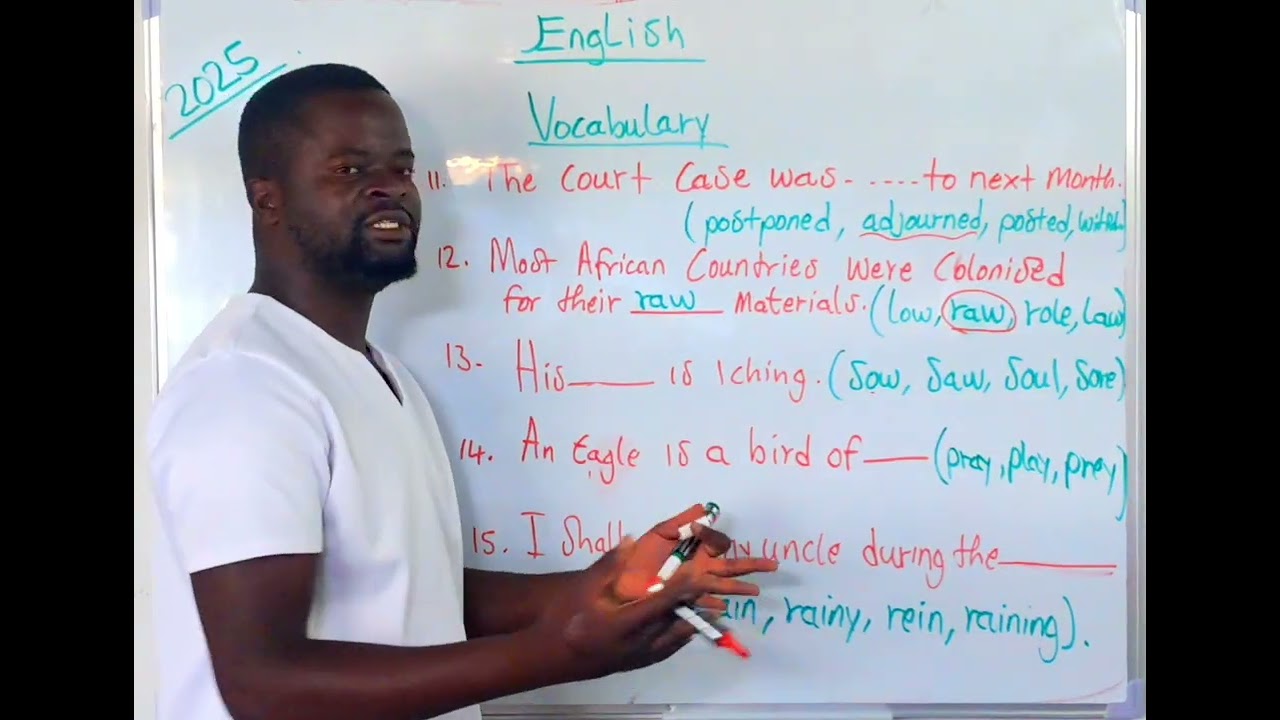 2025
English
Vocabulary
11. The court case was- ....to next month.
(postponed, adjourned, posted,
12. Most African Countries were Colonised
for their raw Materials. (low, raw, role, law)
13. His____ is Iching. (Sow, Saw, Soul, Sore)
14. An Eagle is a bird of____ (pray, play, prey)
15. I Shall uncle during the____
rainy, rein, raining).